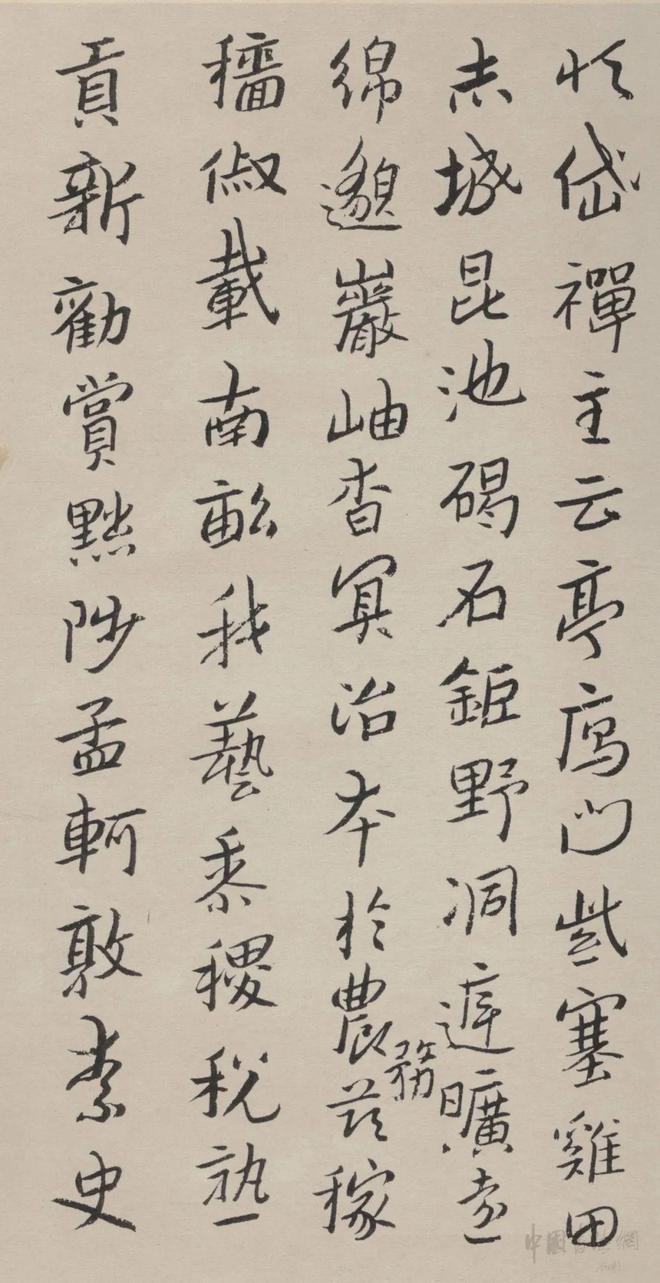 恆岱禪主云亭鴈門紫塞雞田
赤城昆池碣石鉅野洞庭曠遠
綿邈巖岫杳冥治本於農務茲稼
穡俶載南畝我藝黍稷稅熟
貢新勸賞黜陟孟軻敦素史